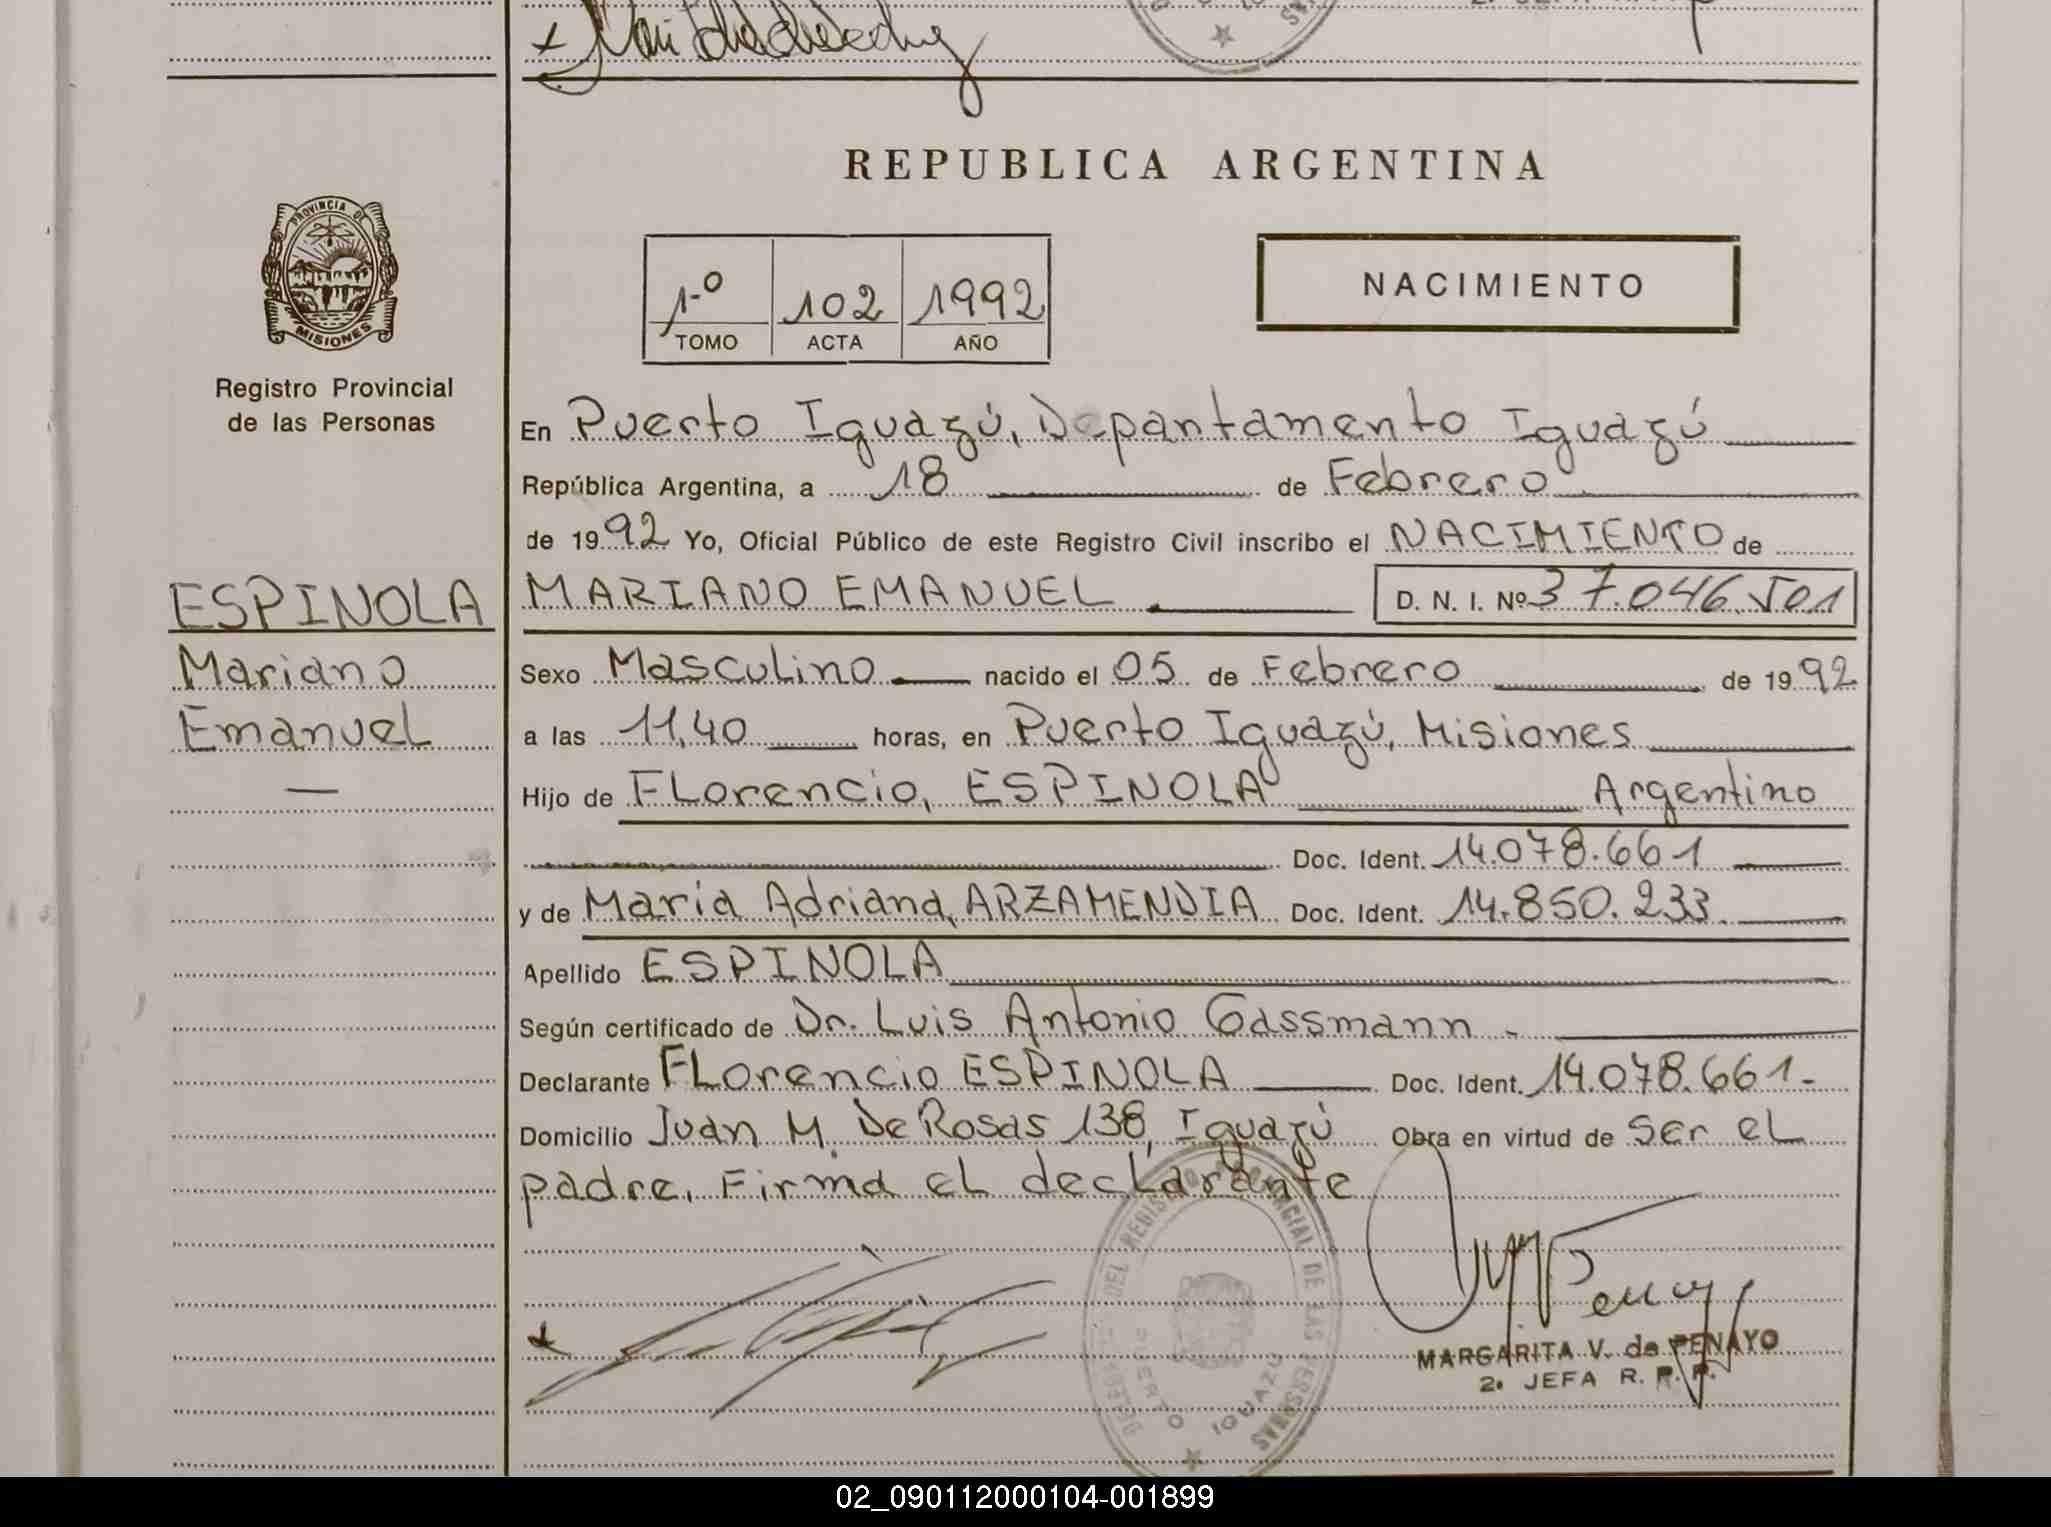 REPUBLICA ARGENTINA
PROVINCIA DE
MISIONES
Registro Provincial
de las Personas
1º 102 1992
TOMO ACTA AÑO
NACIMIENTO
En Puerto Iguazú, Departamento Iguazú
República Argentina, a 18 de Febrero
de 1992 Yo, Oficial Público de este Registro Civil inscribo el NACIMIENTO de
ESPINOLA
Mariano
Emanuel
MARIANO EMANUEL D. N. I. Nº 37.046.501
Sexo Masculino nacido el 05 de Febrero de 1992
a las 11,40 horas, en Puerto Iguazú, Misiones
Hijo de Florencio, ESPINOLA Argentino
Doc. Ident. 14.078.661
y de María Adriana, ARZAMENDIA Doc. Ident. 14.850.233
Apellido ESPINOLA
Según certificado de Dr. Luis Antonio Gassmann -
Declarante Florencio ESPINOLA Doc. Ident. 14.078.661.-
Domicilio Juan M. De Rosas 138, Iguazú Obra en virtud de ser el
padre. Firma el declarante
DEL REGISTRO PROVINCIAL DE LAS PERSONAS
PUERTO IGUAZU
MARGARITA V. de PENAYO
2. JEFA R. P. P.
02_090112000104-001899